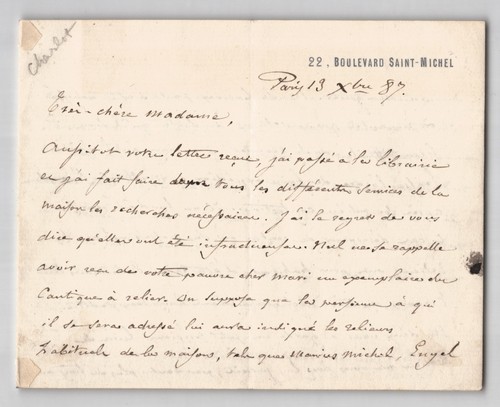 Charlot
22, BOULEVARD SAINT-MICHEL
Paris 13 Xbre 87.
Très-chère Madame,
Aussitot votre lettre reçue, j'ai passé à la librairie
et j'ai fait faire dans tous les différents services de la
maison les recherches nécessaires. J'ai le regret de vous
dire qu'elles ont été infructueuses. Nul ne se rappelle
avoir reçu de votre pauvre cher mari un exemplaire du
Cantique à relier. On suppose que la personne à qui
il se sera adressé lui aura indiqué les relieurs
habituels de la maison, tels que Marius Michel, Engel